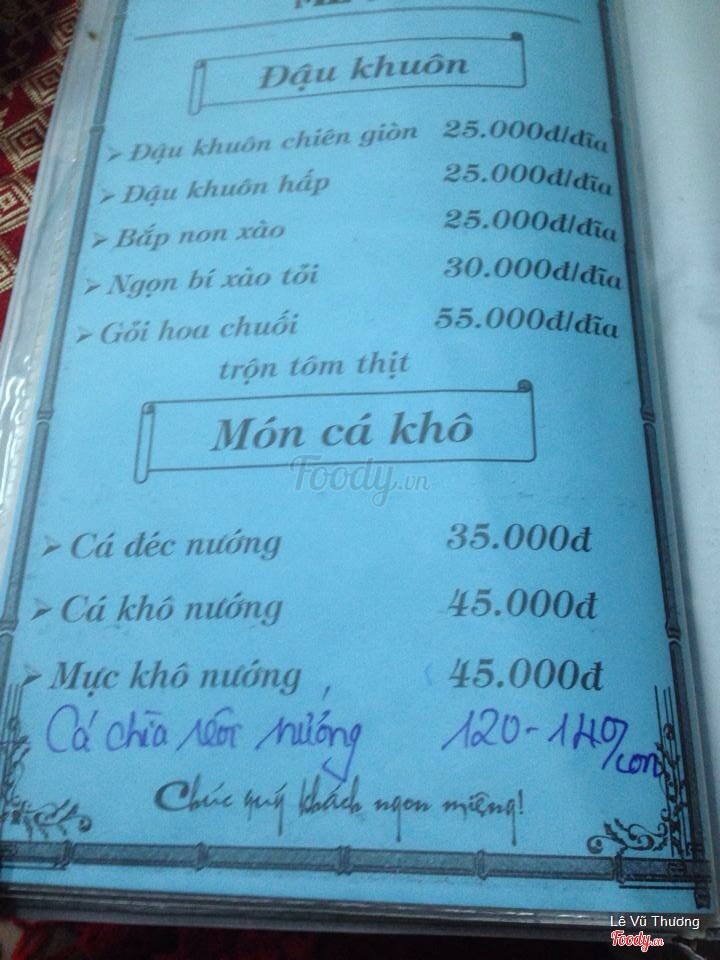 Đậu khuôn
Đậu khuôn chiên giòn 25.000đ/đĩa
Đậu khuôn hấp 25.000đ/đĩa
Bắp non xào 25.000đ/đĩa
Ngọn bí xào tỏi 30.000đ/đĩa
Gỏi hoa chuối 55.000đ/đĩa
trộn tôm thịt
Món cá khô
Foody.vn
Cá đéc nướng 35.000đ
Cá khô nướng 45.000đ
Mực khô nướng 45.000đ
Cá chìa vôi nướng 120-140/con
Chúc quý khách ngon miệng!
Lê Vũ Thương
Foody.vn